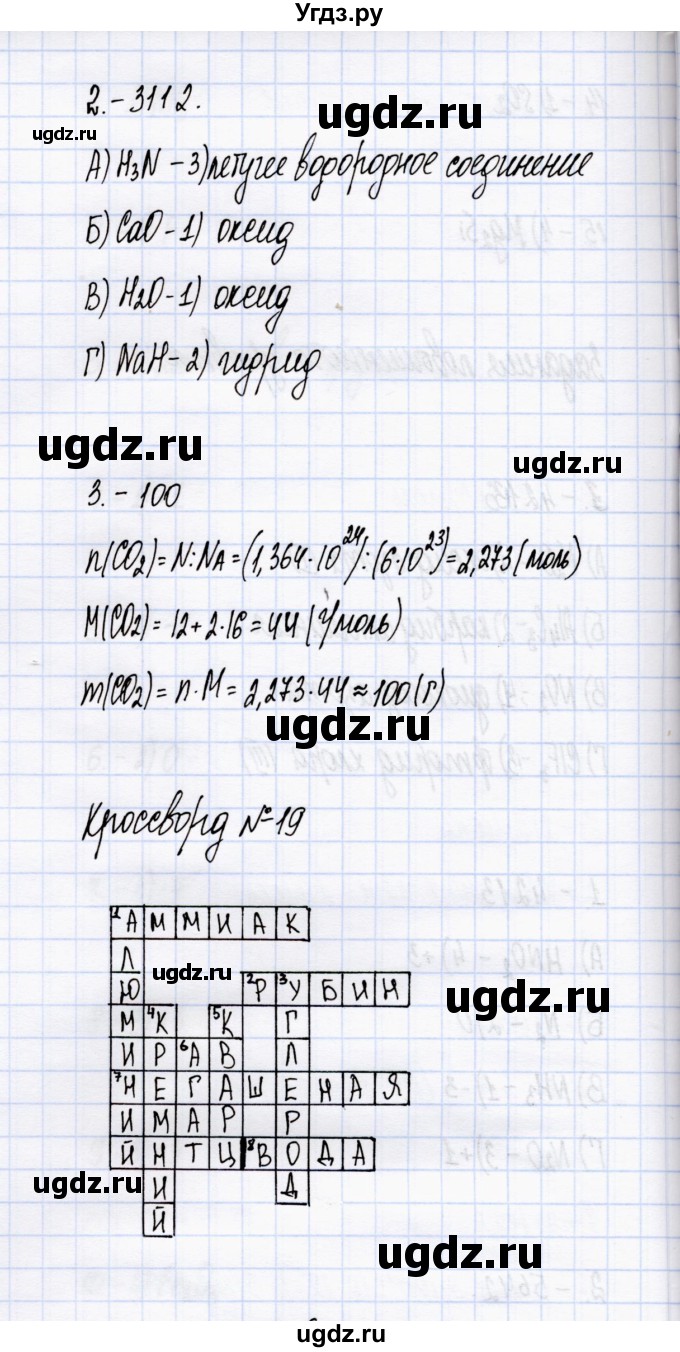 Угдз.ру
2. – 3112.
ugdz.ru
ugdz.ru
А) H₃N – 3) летучее водородное соединение
Б) CaO – 1) оксид
В) H₂O – 1) оксид
Г) NaH – 2) гидрид
ugdz.ru
ugdz.ru
3. – 100
n(CO₂) = N:NA = (1,364·10²⁴):(6·10²³) = 2,273 (моль)
M(CO₂) = 12 + 2·16 = 44 (г/моль)
m(CO₂) = n·M = 2,273·44 ≈ 100 (г)
ugdz.ru
Кроссворд №19
1 А М М И А К
Л ugdz.ru
Ю 2 Р 3 У Б И Н
ugdz.ru
М 4 К 5 К Г
И Р 6 А В Л
7 Н Е Г А Ш Е Н А Я
И М А Р Р
Й Н Т Ц 8 В О Д А
ugdz.ru
И Д
Й
ugdz.ru
ugdz.ru